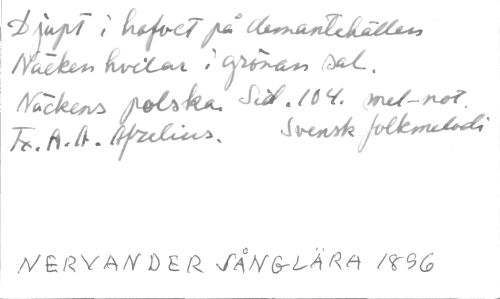 Djupt i hafvet på demantehällen
Näcken hvilar i grönan sal.
Näckens polska. Sid. 104. mel-not.
Tx. A.A. Afzelius. Svensk folkmelodi
NERVANDER SÅNGLÄRA 1896